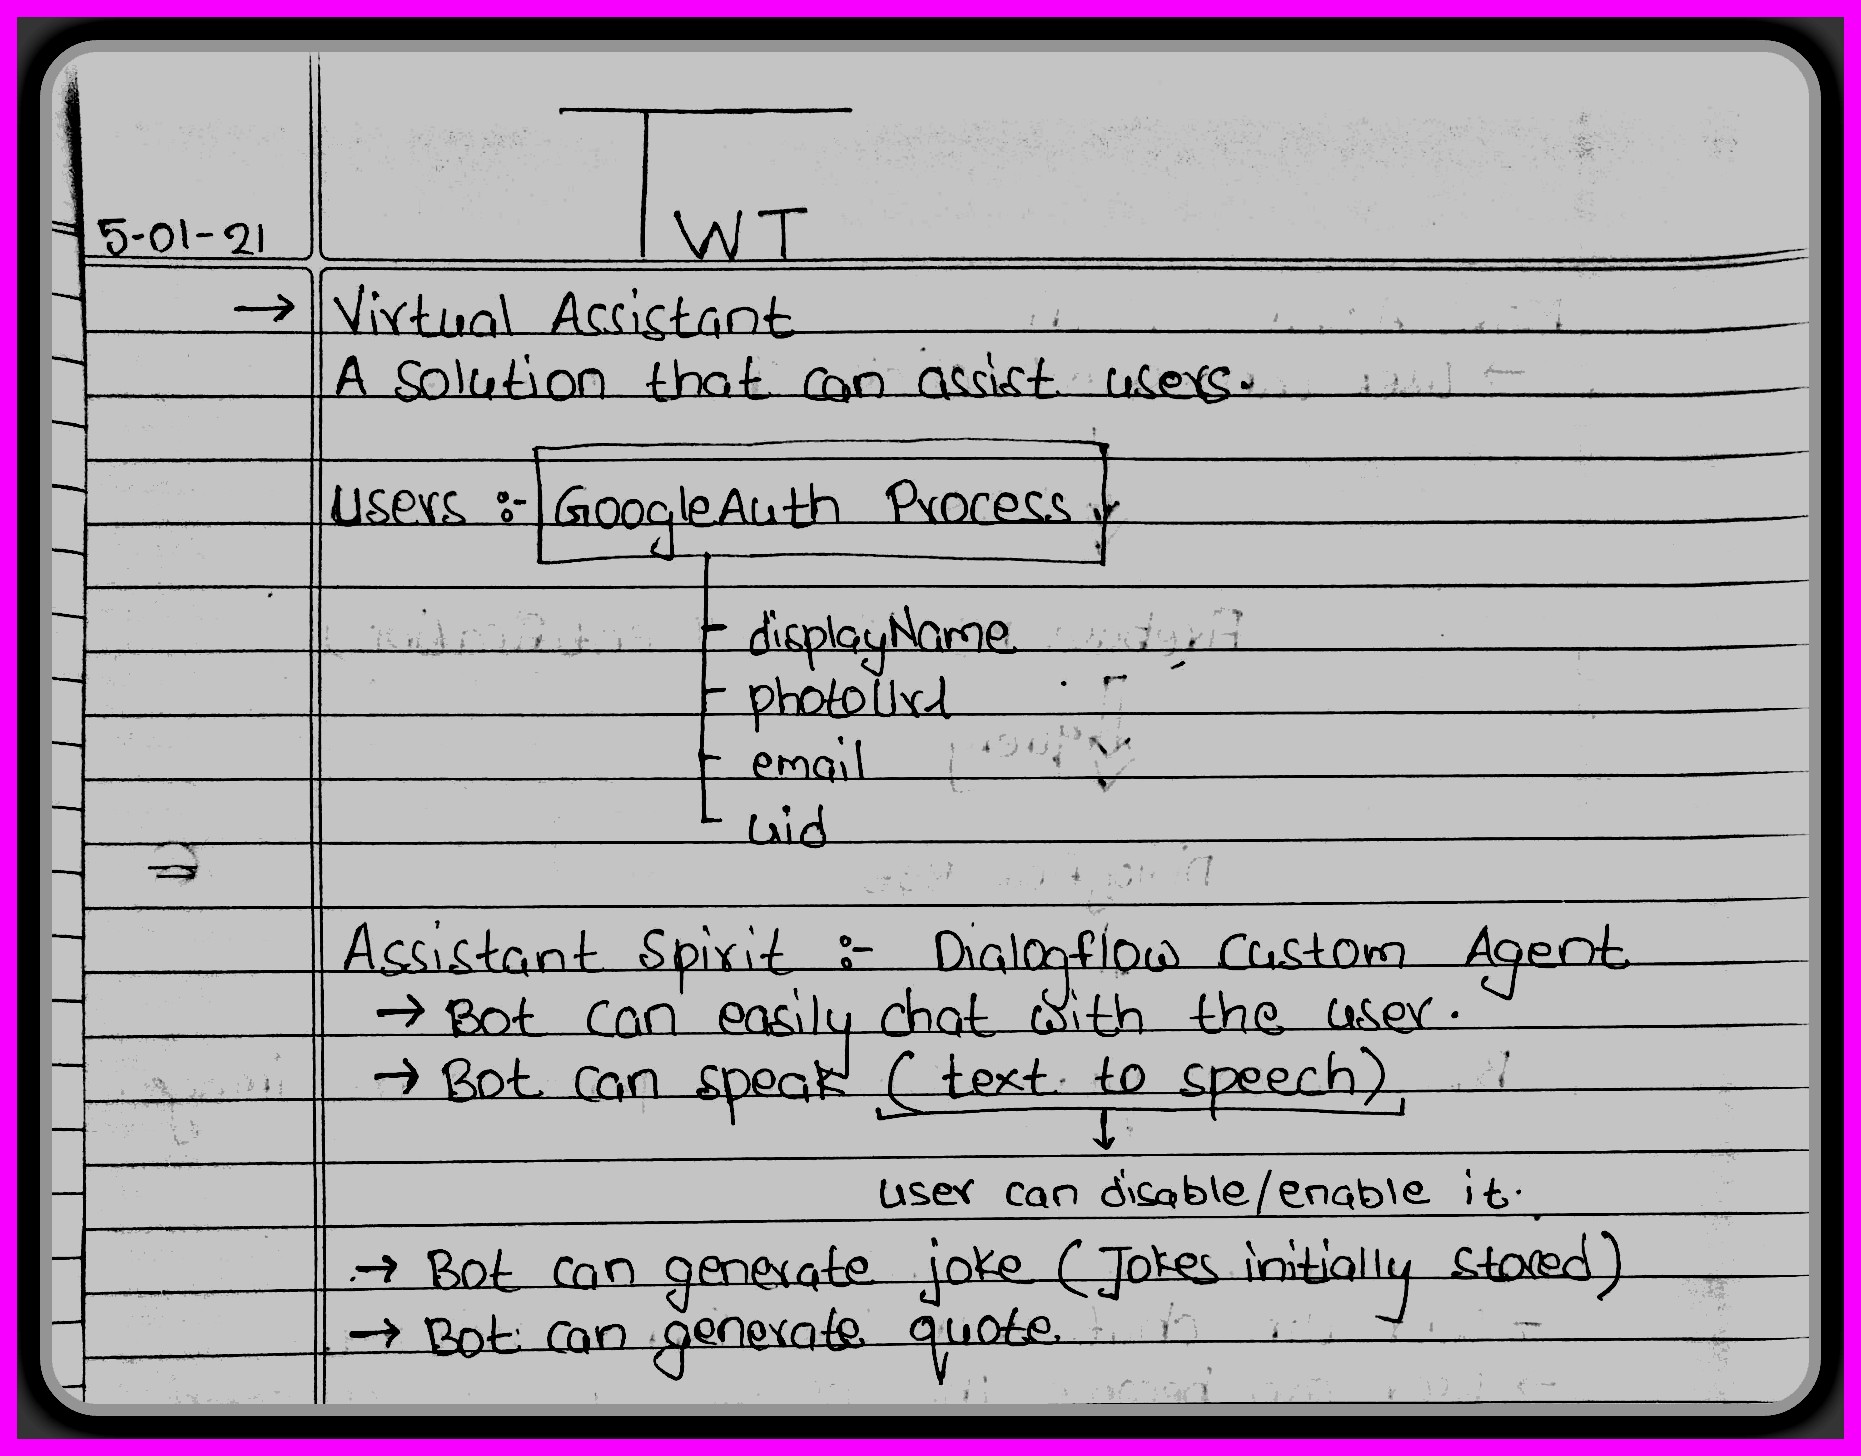 TWT
5-01-21
→ Virtual Assistant
A solution that can assist users.
Users :- GoogleAuth Process
displayName
photoUrl
email
uid
⇒
Assistant Spirit :- Dialogflow Custom Agent
→ Bot can easily chat with the user.
→ Bot can speak (text to speech)
↓
user can disable/enable it.
→ Bot can generate joke (Jokes initially stored)
→ Bot can generate quote